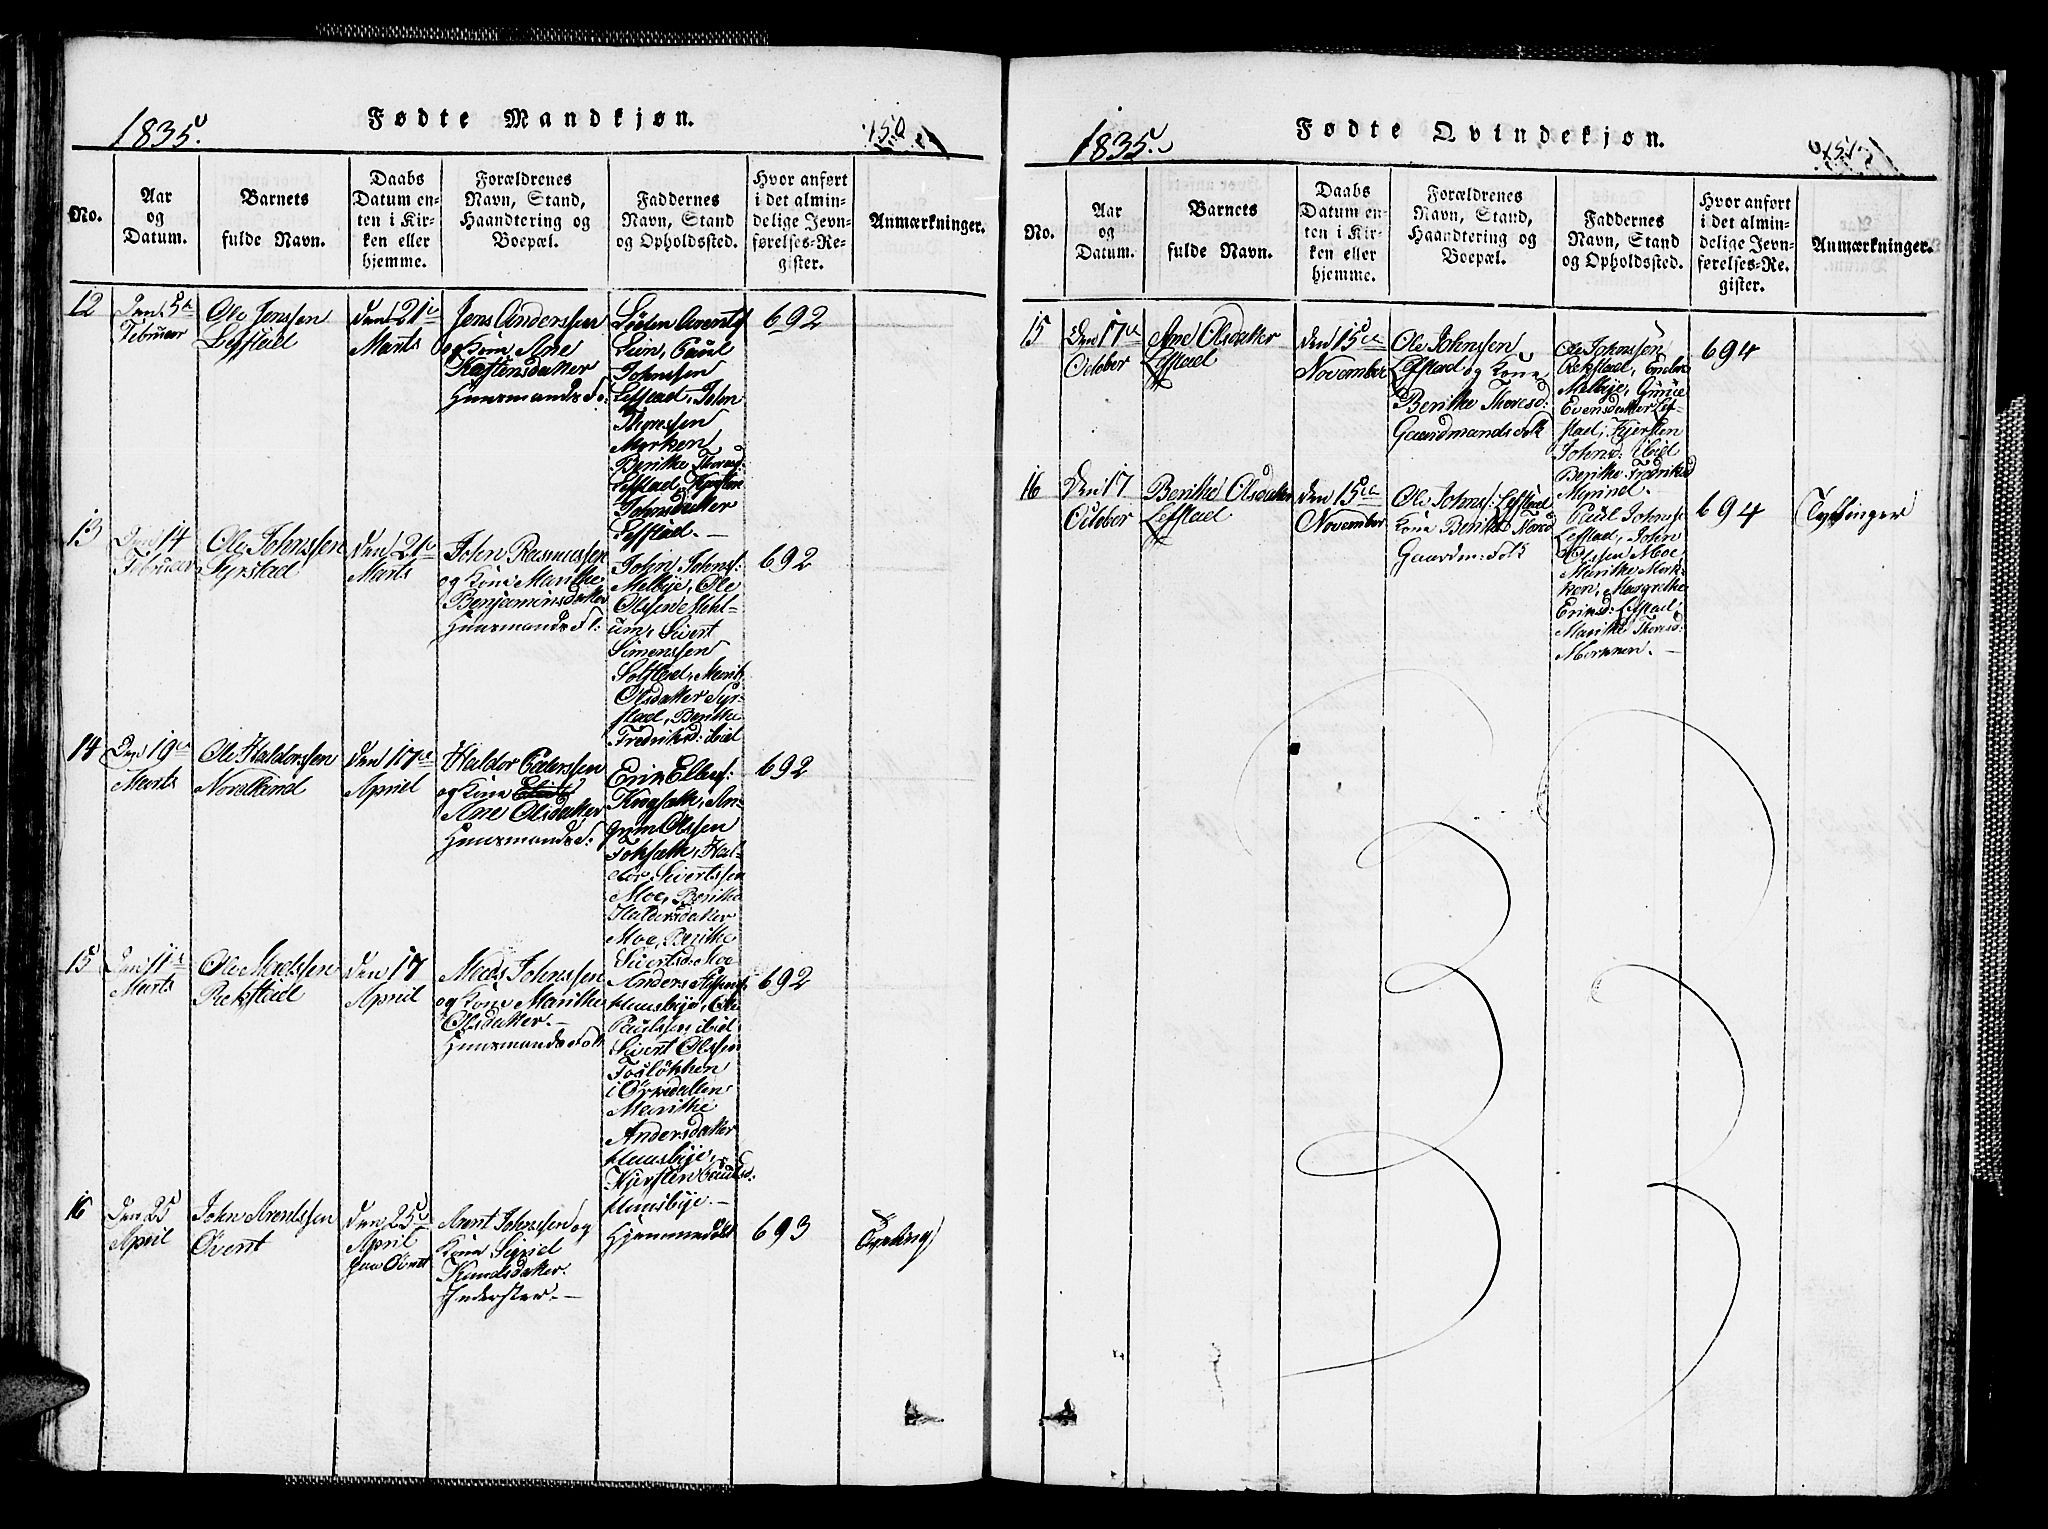 1835.
Fødte Mandkjøn.
150
No.
Aar
og
Datum.
Barnets
fulde Navn.
Daabs
Datum en-
ten i Kir-
ken eller
hjemme.
Forældrenes
Navn, Stand,
Haandtering og
Boepæl.
Faddernes
Navn, Stand
og Opholdssted.
Hvor anført
i det almin-
delige Jevn-
førelses-Re-
gister.
Anmærkninger.
12
Den 5te
Februar
Ole Jenssen
Lefstad
den 21de
Marts
Jens Anderssen
og Kone Ane
Huusmands Fo:
Lien, Paul
Johnssen
Lefstad, John
Thoressen
Morken
Berithe Thoresd:
Lefstad, Kjersten
Johnsdatter
Lefstad.
692
13
Den 14
Februar
Ole Johnssen
Syrstad
den 21de
Marts
John Rasmussen
og Kone Marithe
Benjaminsdatter
Huusmands F:
John Johns:
Melbye, Ole
Olssen Mehl-
um, Sivert
Simenssen
Solstad, Marit
Olsdatter Syr-
stad, Berithe
Fredriksd: ibid
692
14
Den 19de
Marts
Ole Haldorssen
Nordlund
den 17de
April
Haldor Pederssen
og Kone
Ane Olsdatter
Huusmands F:
Erik Ellefs:
grim Olssen
Hal-
dor Sivertssen
Moe, Berithe
Haldorsdatter
Moe, Berithe
Sivertsd: Moe
692
15
Den 11te
Marts
Ole Madssen
Rekstad
den 17
April
Mads Johnssen
og Kone Marithe
Olsdatter.
Huusmands Folk
Anders
Huusbye, Ole
Paulssen ibid
Sivert Olssen
Fosløkken
i Ørkedallen
Marithe
Andersdatter
Huusbye,
Kjersten Paulsd:
Huusbye.
692
16
Den 25
April
John Arentssen
Øvent
den 25de
April
Arent Johnssen og
Kone Sigrid
Knudsdatter.
Inderster.
Hjemmedøbt
693
Tvilling
1835.
Fødte Qvindekjøn.
151
No.
Aar
og
Datum.
Barnets
fulde Navn.
Daabs
Datum en-
ten i Kir-
ken eller
hjemme.
Forældrenes
Navn, Stand,
Haandtering og
Boepæl.
Faddernes
Navn, Stand
og Opholdssted.
Hvor anført
i det almin-
delige Jevn-
førelses-Re-
gister.
Anmærkninger.
15
Den 17de
October
Ane Olsdatter
Lefstad
den 15de
November
Ole Johnssen
Lefstad og Kone
Berithe Thoresd:
Gaardmands Folk
Ole Johnssen
Rekstad,
Melbye,
Evensdatter Lef-
stad, Kjersten
Johnsd: ibid
Berithe Fredriksd
694
16
Den 17
October
Berithe Olsdatter
Lefstad
den 15de
November
Ole Johns: Lefstad
Kone Berithe Thoresd
Gaardm: Folk
Paul Johns:
Lefstad, John
Olssen Moe,
Marithe Mork-
ken, Margrethe
Eriksd: Lefstad,
Marithe Thoresd:
Morken.
694